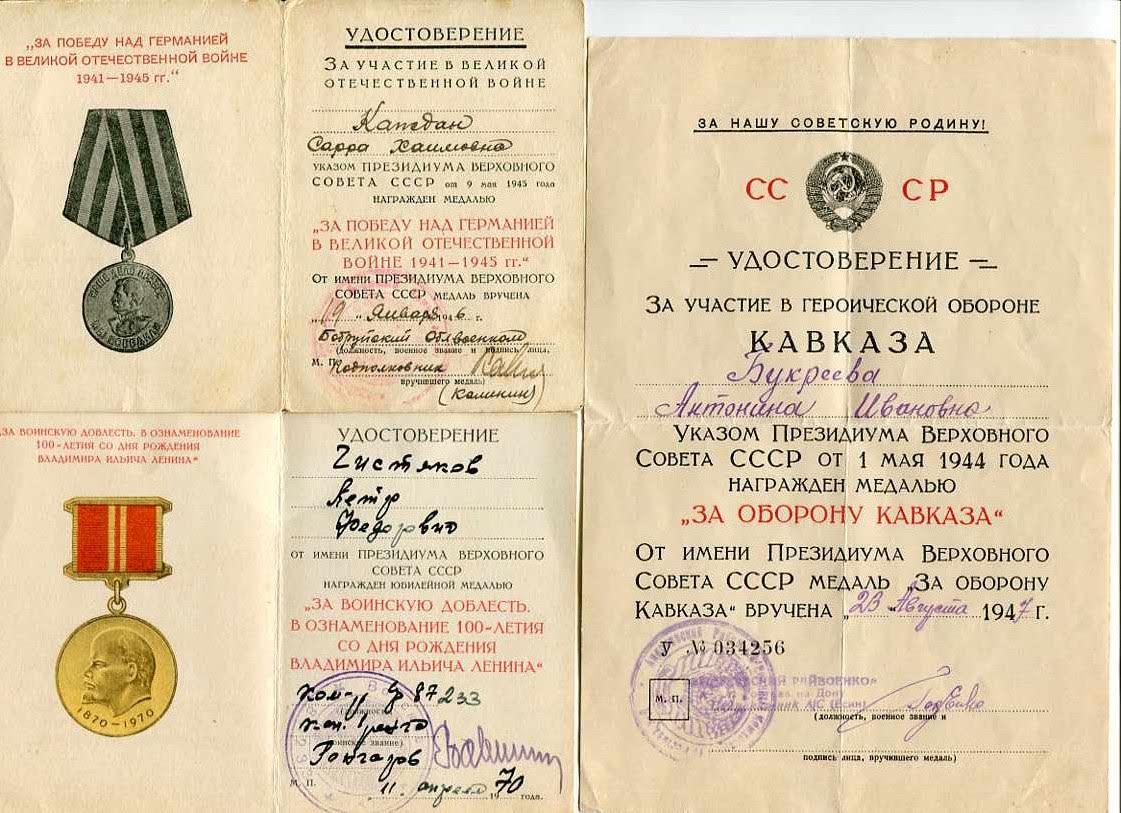 „ЗА ПОБЕДУ НАД ГЕРМАНИЕЙ
В ВЕЛИКОЙ ОТЕЧЕСТВЕННОЙ ВОЙНЕ
1941—1945 гг.“
НАШЕ ДЕЛО ПРАВОЕ
МЫ ПОБЕДИЛИ
УДОСТОВЕРЕНИЕ
ЗА УЧАСТИЕ В ВЕЛИКОЙ
ОТЕЧЕСТВЕННОЙ ВОЙНЕ
Каждан
Сарра Хаимовна
УКАЗОМ ПРЕЗИДИУМА ВЕРХОВНОГО
СОВЕТА СССР от 9 мая 1945 года
НАГРАЖДЕН МЕДАЛЬЮ
„ЗА ПОБЕДУ НАД ГЕРМАНИЕЙ
В ВЕЛИКОЙ ОТЕЧЕСТВЕННОЙ
ВОЙНЕ 1941—1945 гг.“
От имени ПРЕЗИДИУМА ВЕРХОВНОГО
СОВЕТА СССР МЕДАЛЬ ВРУЧЕНА
„19“ Января 1946 г.
Бобруйский Облвоенком
(должность, военное звание и подпись лица,
М. П. Подполковник
вручившего медаль)
(Калинин)
ЗА ВОИНСКУЮ ДОБЛЕСТЬ. В ОЗНАМЕНОВАНИЕ
100-ЛЕТИЯ СО ДНЯ РОЖДЕНИЯ
ВЛАДИМИРА ИЛЬИЧА ЛЕНИНА“
1870—1970
УДОСТОВЕРЕНИЕ
Чистяков
Петр
Федорович
ОТ ИМЕНИ ПРЕЗИДИУМА ВЕРХОВНОГО
СОВЕТА СССР
НАГРАЖДЕН ЮБИЛЕЙНОЙ МЕДАЛЬЮ
„ЗА ВОИНСКУЮ ДОБЛЕСТЬ.
В ОЗНАМЕНОВАНИЕ 100-ЛЕТИЯ
СО ДНЯ РОЖДЕНИЯ
ВЛАДИМИРА ИЛЬИЧА ЛЕНИНА“
87233
(воинское звание)
М. П.
11 апреля 1970 года.
ЗА НАШУ СОВЕТСКУЮ РОДИНУ!
СС СР
УДОСТОВЕРЕНИЕ
ЗА УЧАСТИЕ В ГЕРОИЧЕСКОЙ ОБОРОНЕ
КАВКАЗА
Букреева
Антонина Ивановна
УКАЗОМ ПРЕЗИДИУМА ВЕРХОВНОГО
СОВЕТА СССР ОТ 1 МАЯ 1944 ГОДА
НАГРАЖДЕН МЕДАЛЬЮ
„ЗА ОБОРОНУ КАВКАЗА“
ОТ ИМЕНИ ПРЕЗИДИУМА ВЕРХОВНОГО
СОВЕТА СССР МЕДАЛЬ „ЗА ОБОРОНУ
КАВКАЗА“ ВРУЧЕНА „23“ Августа 1947 г.
У № 034256
М. П.
(должность, военное звание и
подпись лица, вручившего медаль)